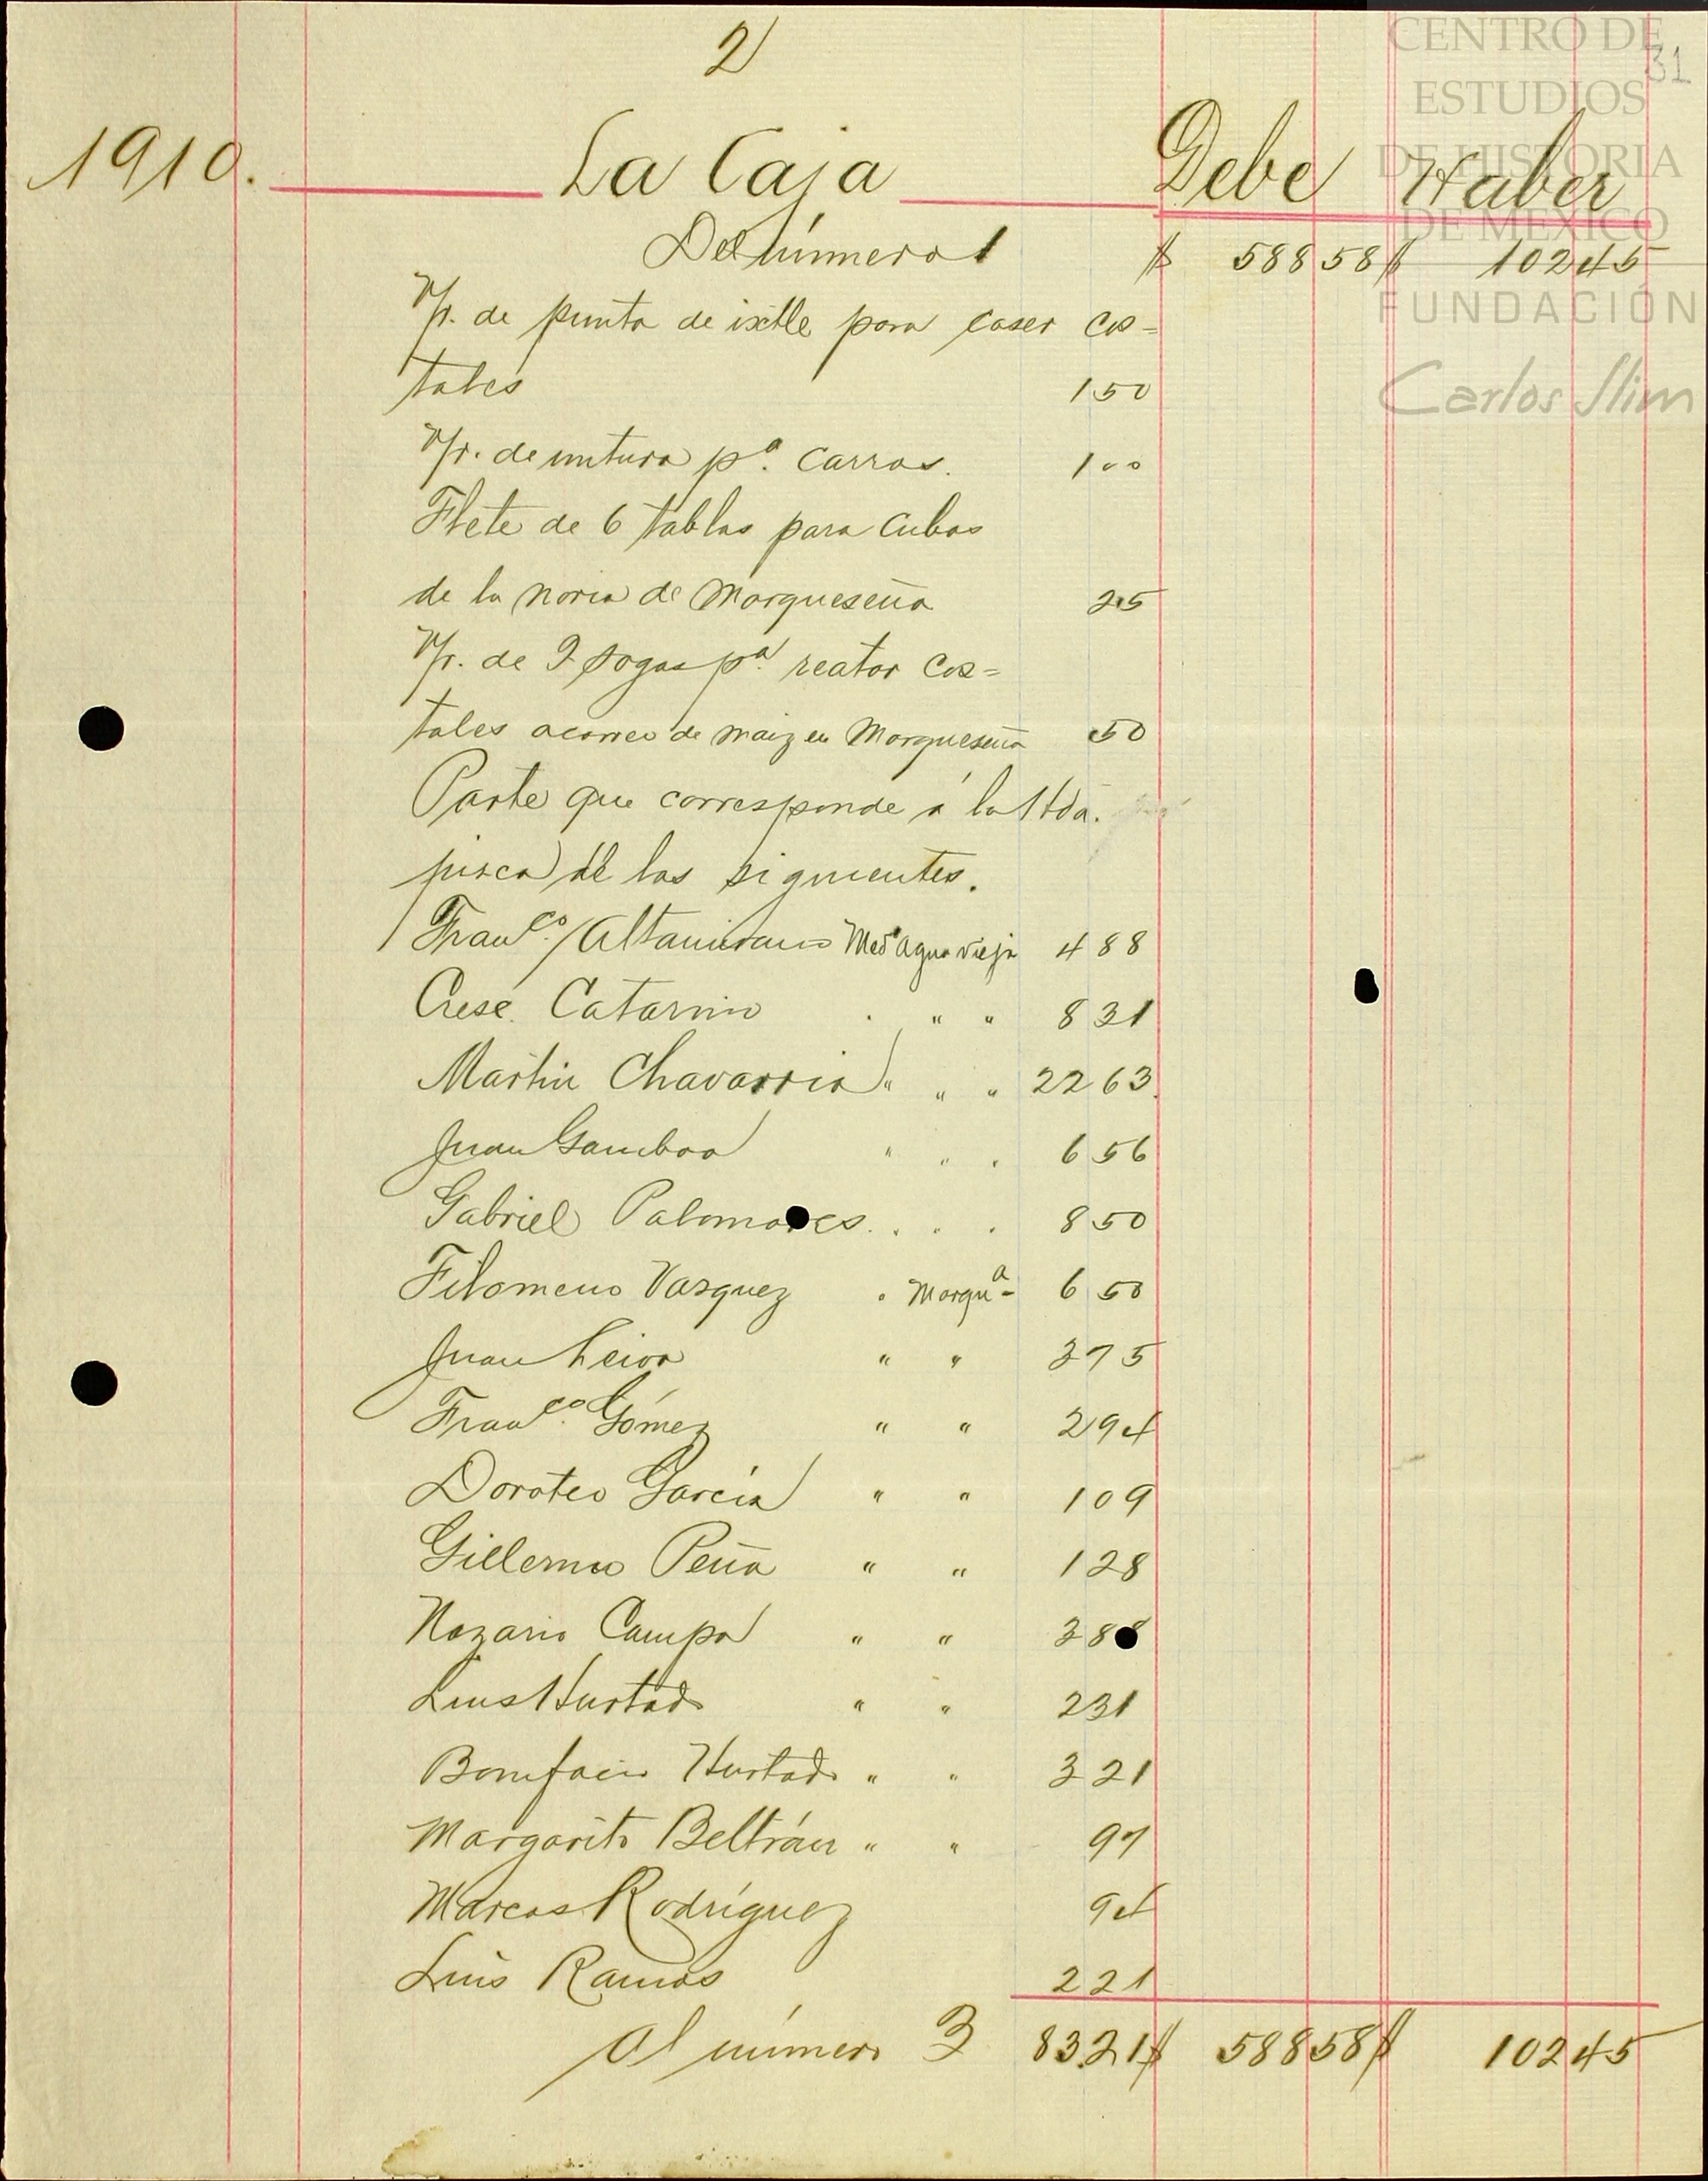 2
31
CENTRO DE
ESTUDIOS
DE HISTORIA
DE MEXICO
FUNDACIÓN
Carlos Slim
1910. La Caja Debe Haber
Del número 1 $ 588 58 $ 102 45
Vr. de punta de ixtle para coser cos=
tales 1 50
Vr. de untura pª. carros. 1 00
Flete de 6 tablas para cubos
de la noria de Marqueseña 25
Vr. de 2 sogas pª. reatar cos=
tales acarreo de maiz en Marqueseña 50
Parte que corresponde á la Hda.
pisca de los siguientes.
Franco. Altamirano Meds Agua vieja 4 88
Cresc. Catarino . " " 8 31
Martin Chavarria " " " 22 63
Juan Gamboa " " " 6 56
Gabriel Palomares . . . . 8 50
Filomeno Vasquez . Marquª- 6 50
Juan Leiva " " 3 75
Franco. Gómez " " 2 94
Doroteo García " " 1 09
Gillermo Peña " " 1 28
Nazario Campa " " 3 88
Luis Hurtado " " 2 31
Bonifacio Hurtado " " 3 21
Margarito Beltrán " " 97
Marcos Rodríguez 94
Luis Ramos 2 21
Al número 3 83.21 $ 588 58 $ 102 45